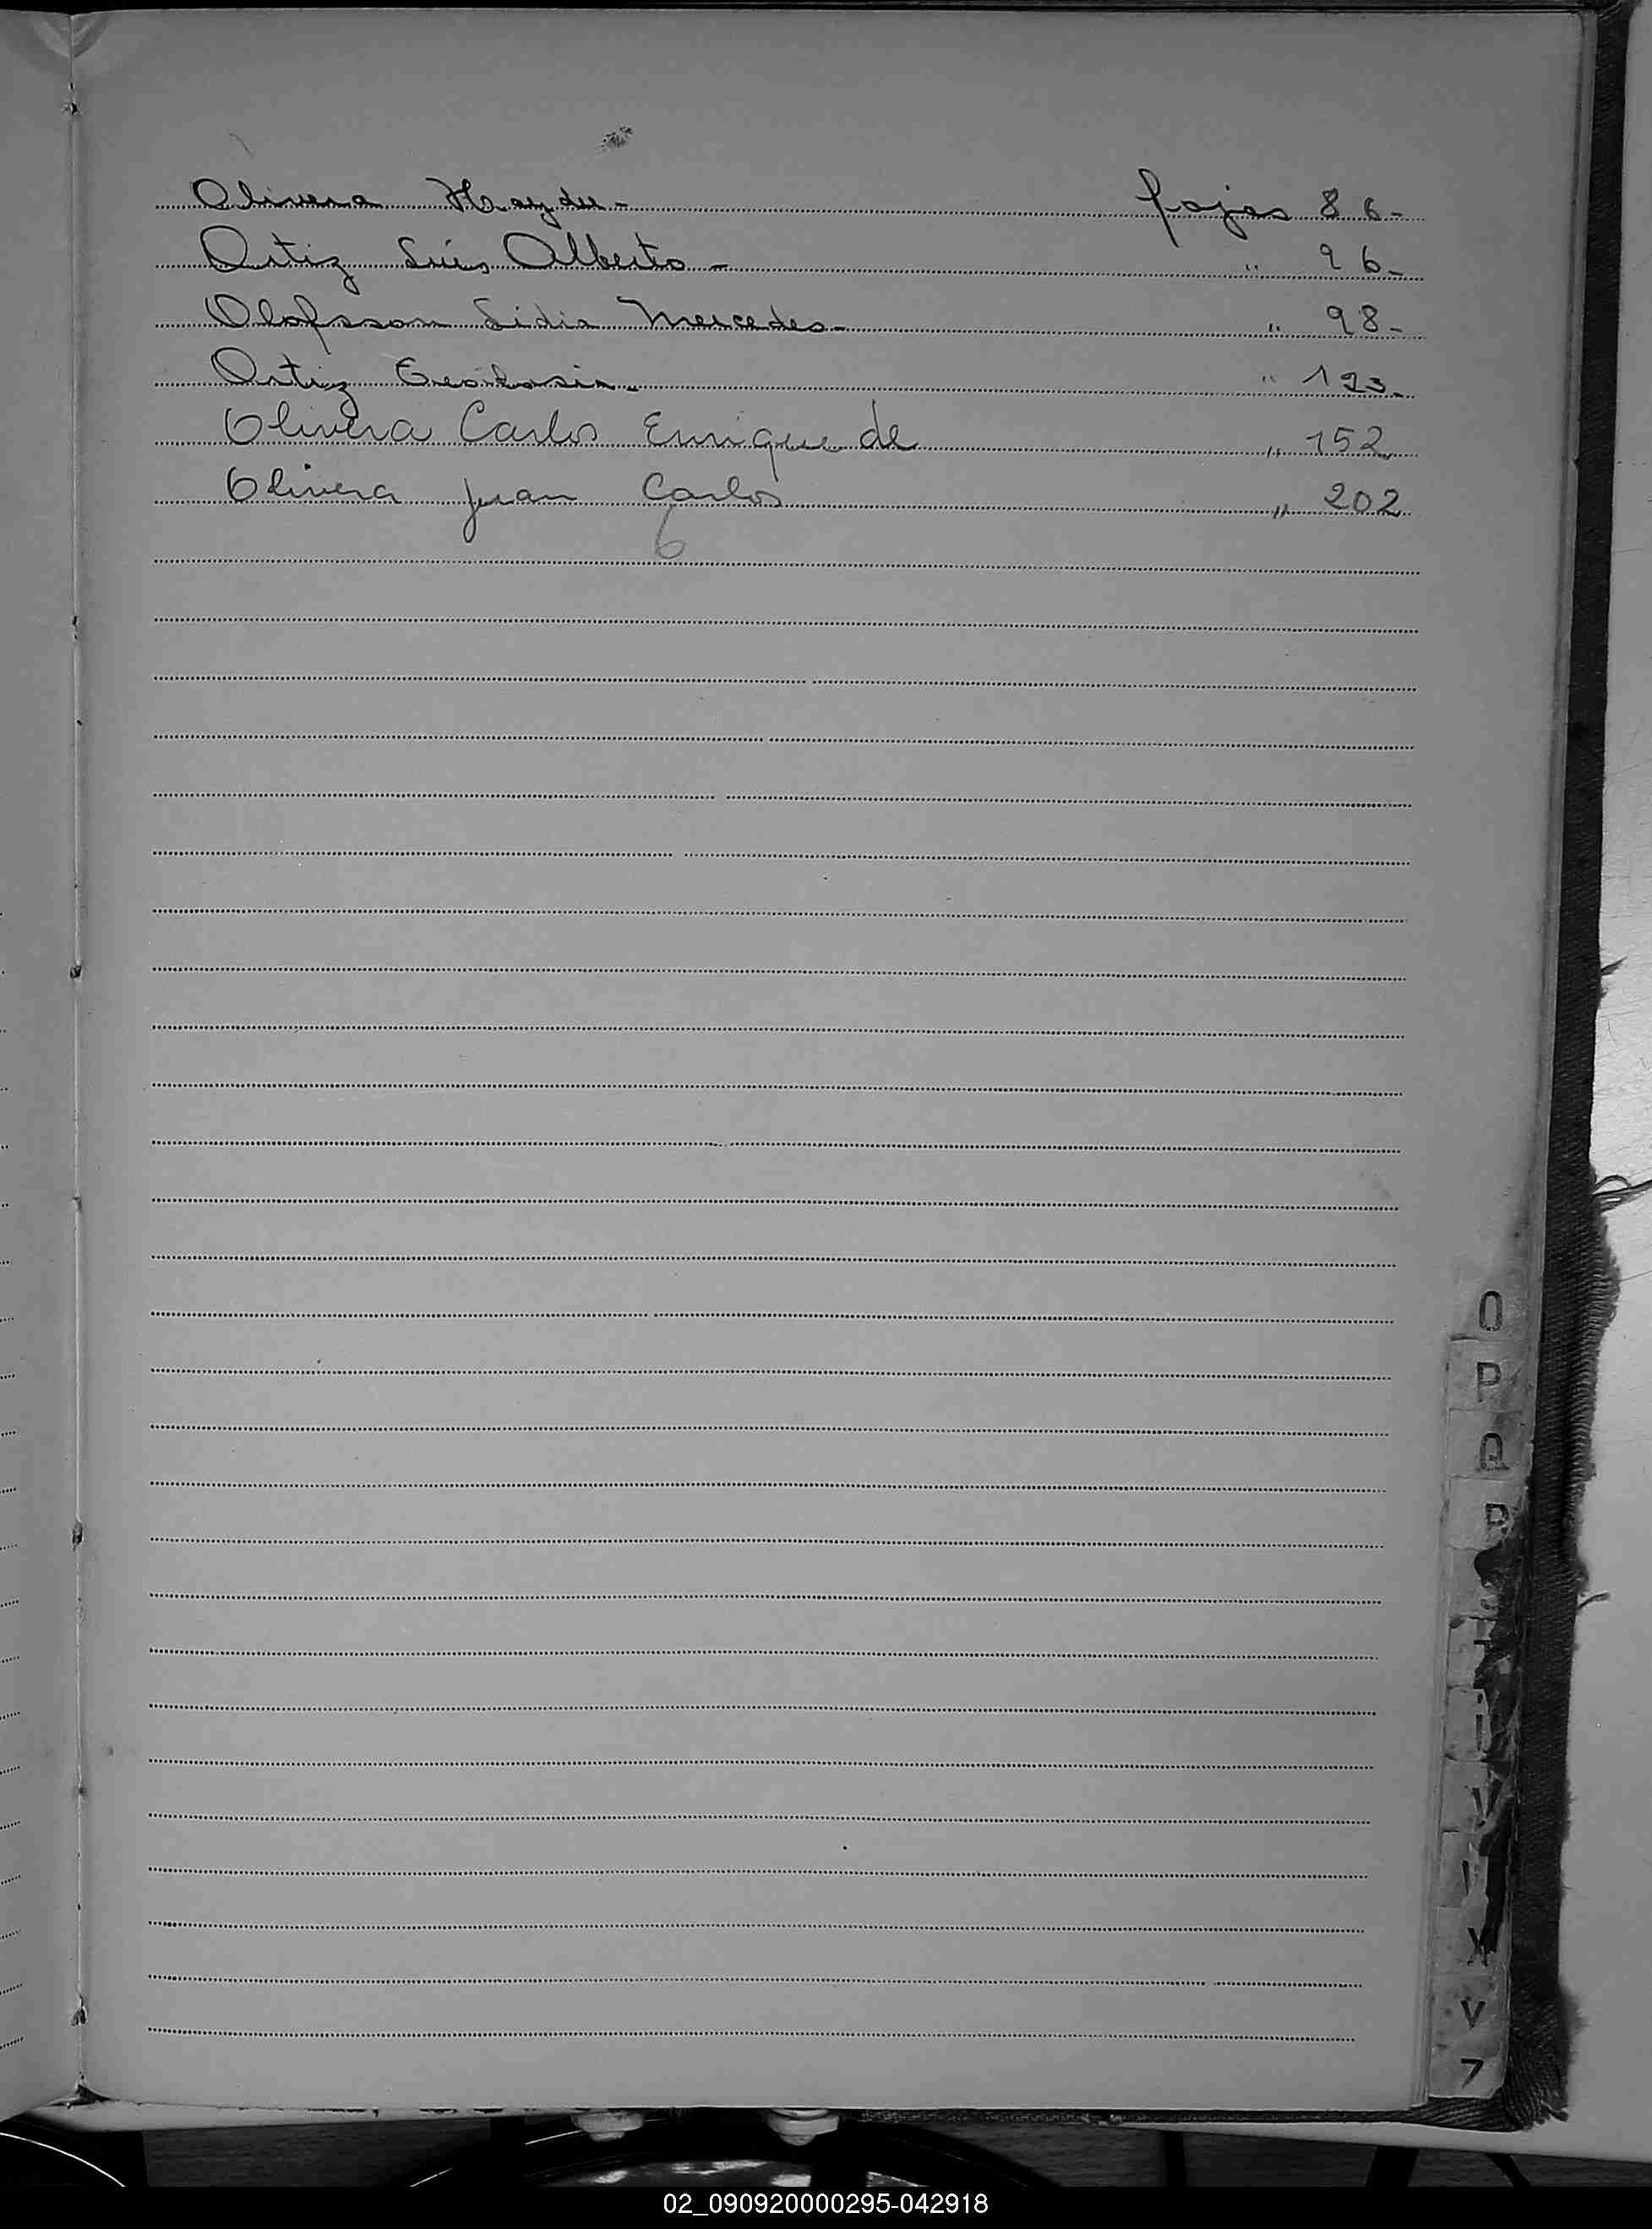 Olivera Haydee- fojas 86-
Ortiz Luis Alberto- " 96-
Olofsson Lidia Mercedes- " 98-
Ortiz " 123-
Olivera Carlos Enrique de " 152
Olivera Juan Carlos " 202
6
O
P
Q
R
V
X
02_090920000295-042918